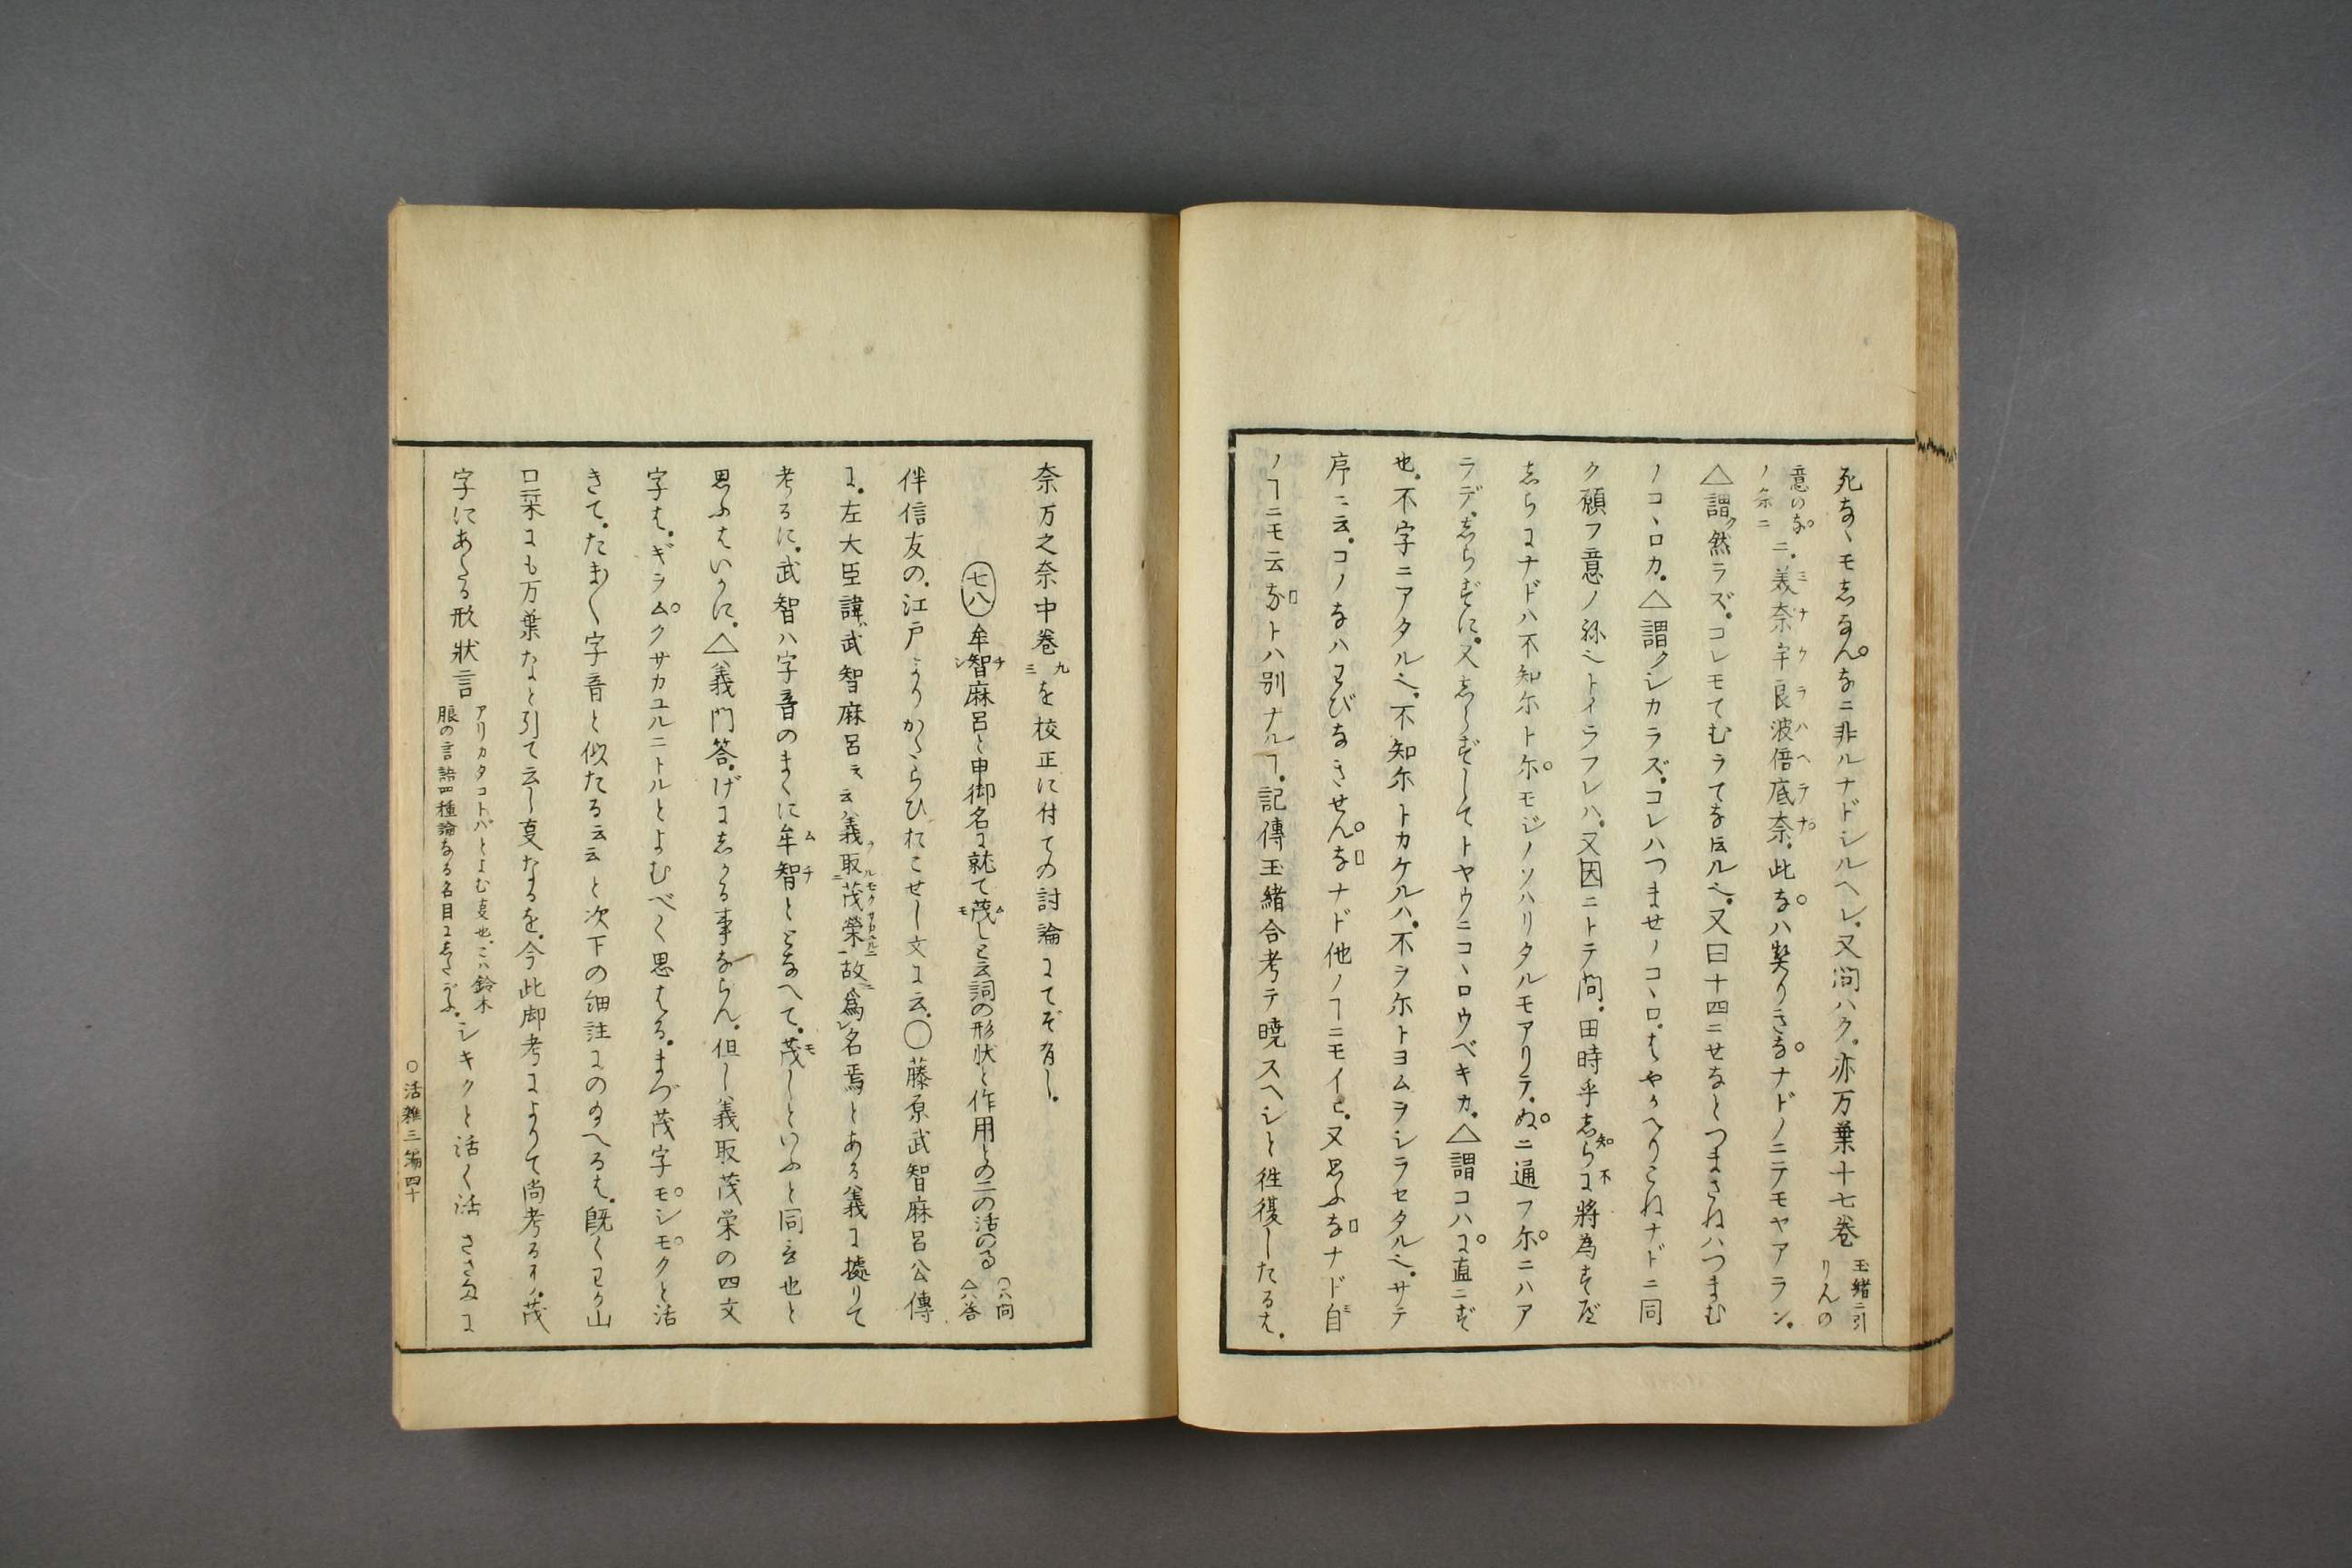 死なヽモしなんなニ非ルナドシルヘシ又問ハク亦万葉十七巻 玉緒ニ引りんの
意のなノ条ニ ニ美奈宇良波倍底奈此なハ契りきなナドノニテモヤアラン
△謂ク然ラズコレモてむラてな云ルヘシ又曰十四ニせなとつまさねハつまむ
ノコヽロカ△謂クシカラズコレハつませノコヽロはやかへりこねナドニ同
ク願フ意ノねヘトイラフレハ又因ニトテ問田時乎しらに将為すべ
しらにナドハ不知尓ト尓モジノソハリタルモアリテぬニ通フ尓ニハア
ラデしらずに又しらずしてトヤウニコヽロウベキカ△謂コハに直ニず
也不字ニアタル不知尓トカケルハ不ヲ尓トヨムヲシラセタル也サテ
序ニ云コノなハわびなきせんなナド他ノヿニモイヒ又思ふなナド自
ノヿニモ云なトハ別ナルヿ記傳玉緒合考テ暁スヘシと徃復したるは
奈万之奈中巻九三を校正に付ての討論にてぞ有し
七八 牟智麻呂と申御名に就て茂しと云詞の形状と作用との二の活のる ○ハ問 △ハ答
伴信友の江戸よりかたらひおこせし文に云○藤原武智麻呂公傳
に左大臣諱武智麻呂云云義取茂榮故為名焉とある義に據りて
考るに武智ハ字音のまヽに牟智ととなへて茂しといふと同言也と
思ふはいかに△義門答げにしかる事ならん但し義取茂栄の四文
字はギラムクサカユルニトルとよむべく思はるまづ茂字モシモクと活
きてたま〱字音と似たる云云と次下の細註にのたへるは既くわか山
口栞にも万葉なと引て云し叓なるを今此御考によりて尚考るに茂
字にあたる形状言 アリカタコトバとよむ叓也こハ鈴木 服の言語四種論なる名目にしたがふ シキクと活く活 ささぬに
○活雑三編四十